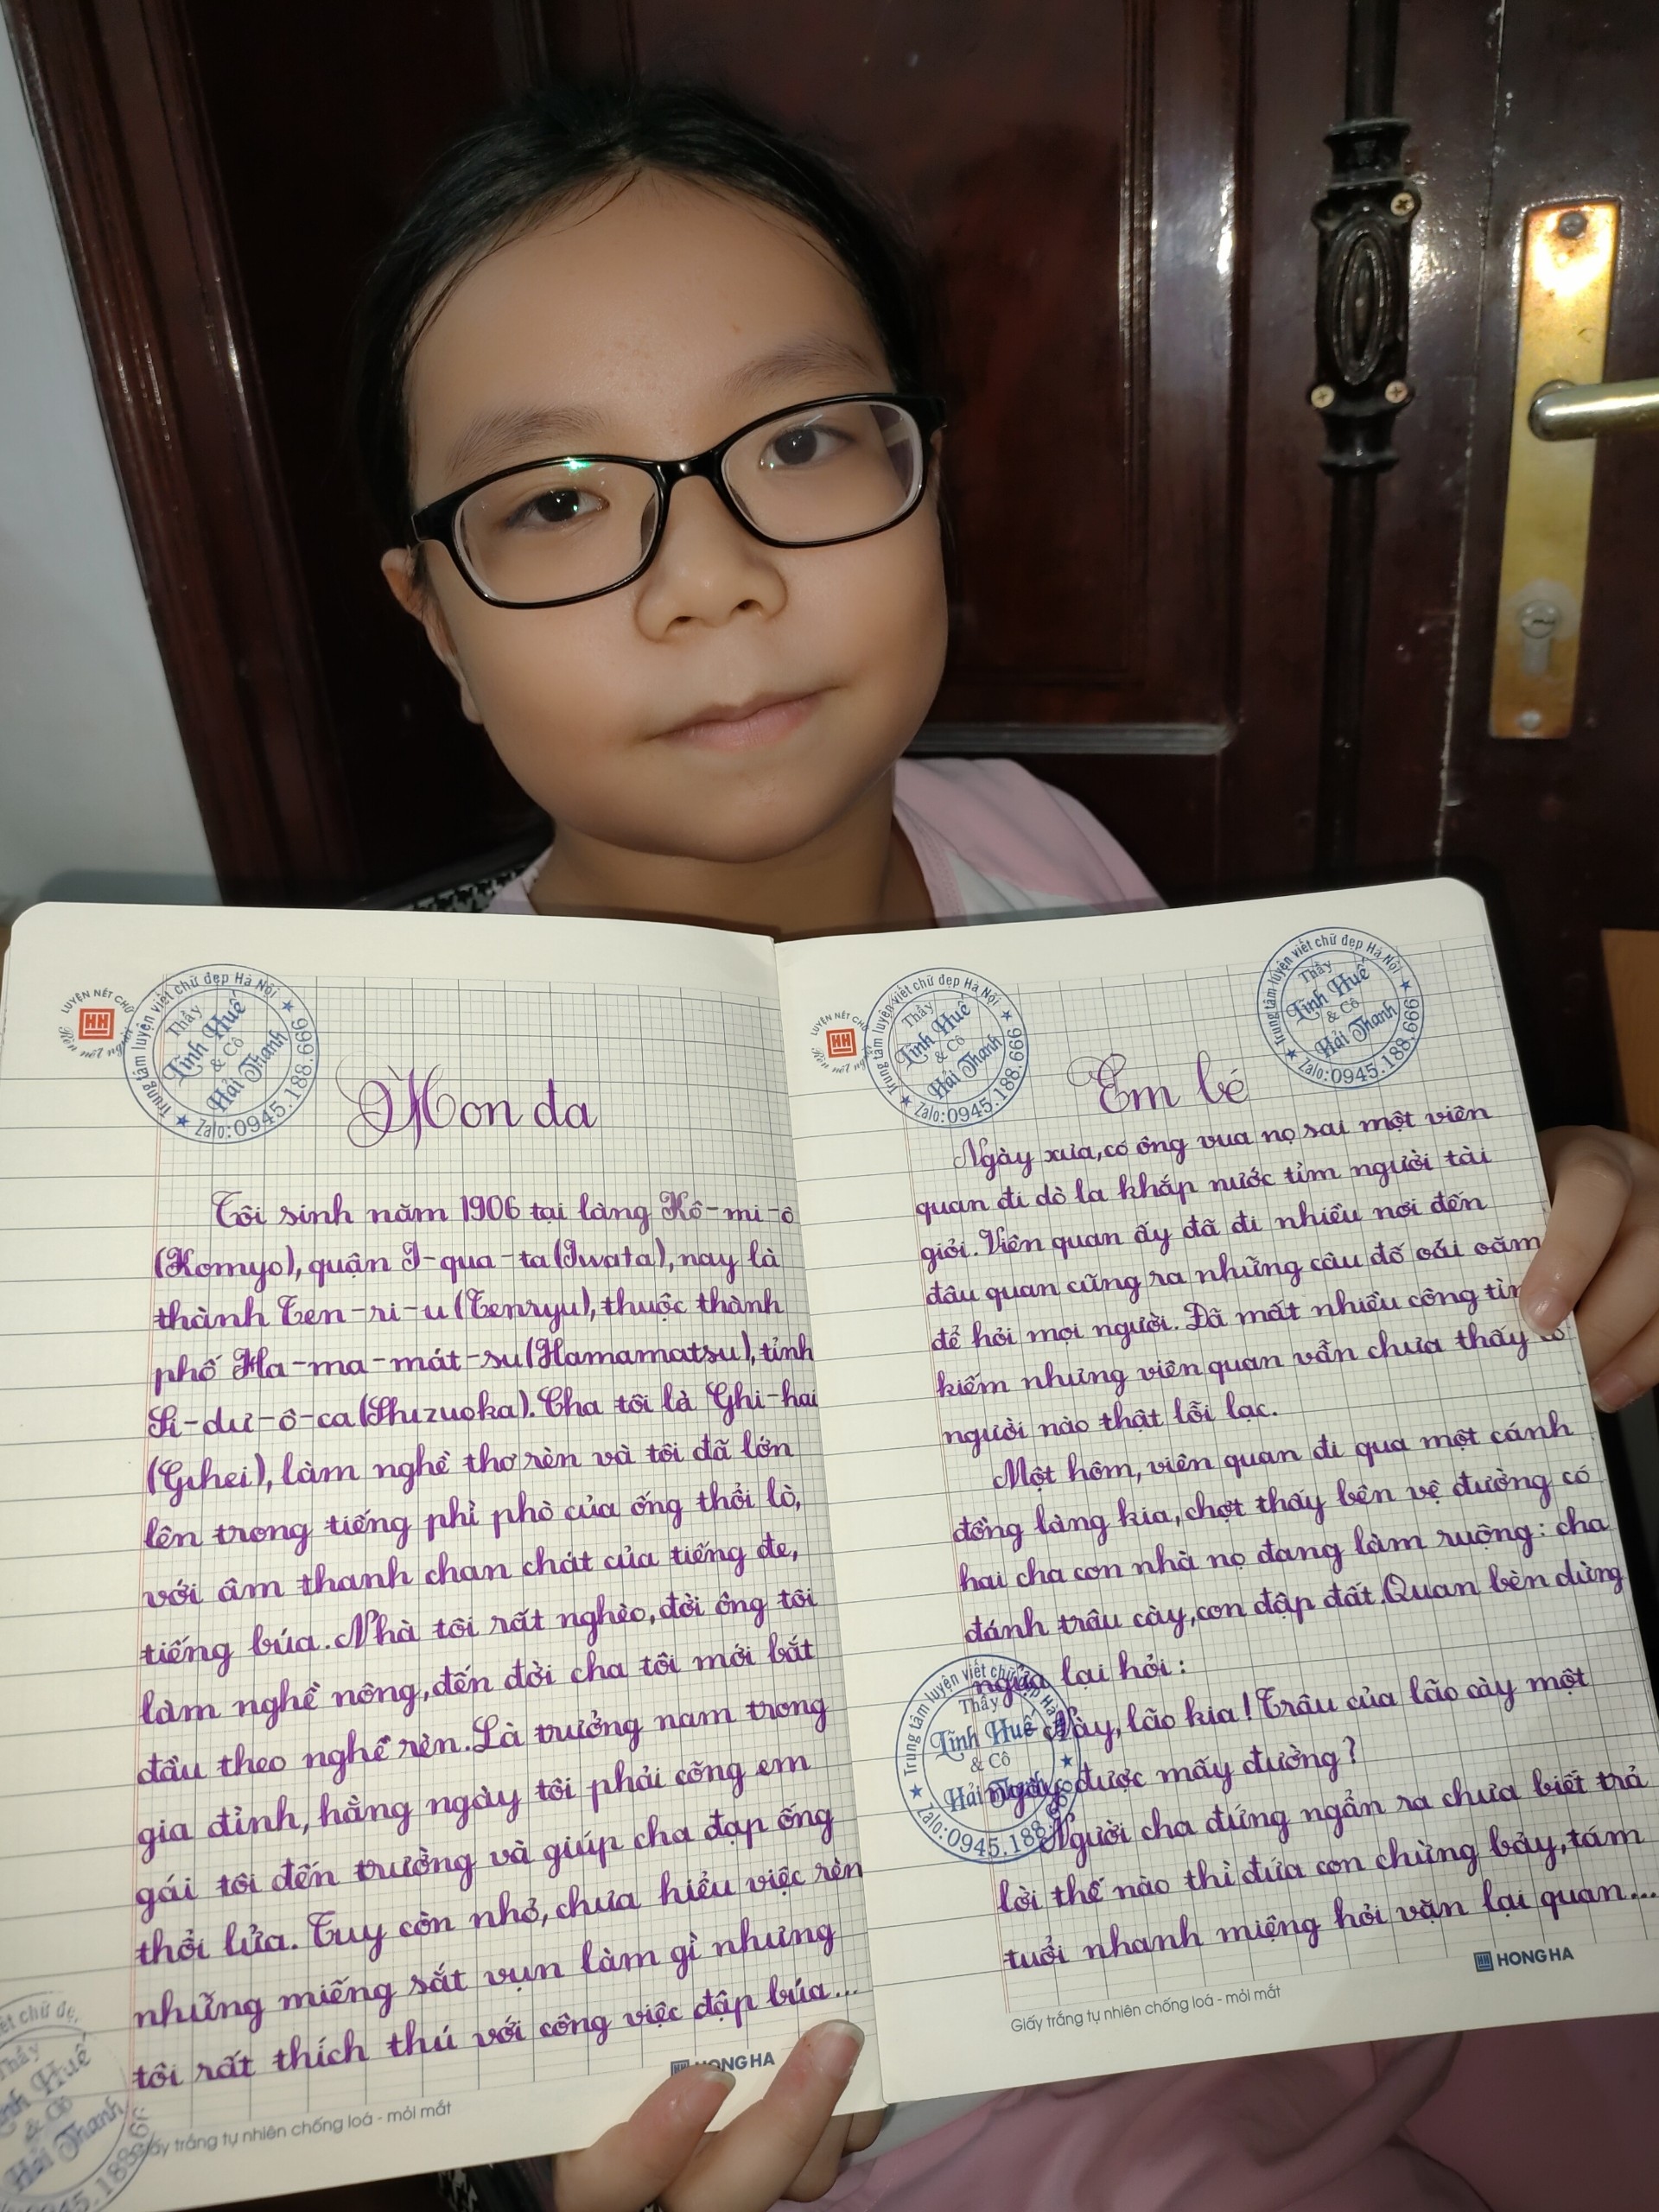 LUYỆN NÉT CHỮ
Rèn nết người
HH
Trung tâm luyện viết chữ đẹp Hà Nội
Thầy
Tĩnh Huế
& Cô
Hải Thanh
★ Zalo: 0945.188.666 ★
Hon da
Tôi sinh năm 1906 tại làng Kô-mi-ô
(Komyo), quận I-qua-ta (Iwata), nay là
thành Ten-ri-u (Tenryu), thuộc thành
phố Ha-ma-mát-su (Hamamatsu), tỉnh
Si-dư-ô-ca (Shizuoka). Cha tôi là Ghi-hai
(Gihei), làm nghề thơ rèn và tôi đã lớn
lên trong tiếng phì phò của ống thổi lò,
với âm thanh chan chát của tiếng đe,
tiếng búa. Nhà tôi rất nghèo, đời ông tôi
làm nghề nông, đến đời cha tôi mới bắt
đầu theo nghề rèn. Là trưởng nam trong
gia đình, hằng ngày tôi phải cõng em
gái tôi đến trường và giúp cha đạp ống
thổi lửa. Tuy còn nhỏ, chưa hiểu việc rèn
những miếng sắt vụn làm gì nhưng
tôi rất thích thú với công việc đập búa...
HONG HA
Giấy trắng tự nhiên chống loá - mỏi mắt
viết chữ đẹ
Thầy
Tĩnh Huế
& Cô
Hải Thanh
0945.188.66
LUYỆN NÉT CHỮ
Rèn nết người
HH
Trung tâm luyện viết chữ đẹp Hà Nội
Thầy
Tĩnh Huế
& Cô
Hải Thanh
★ Zalo: 0945.188.666 ★
Trung tâm luyện viết chữ đẹp Hà Nội
Thầy
Tĩnh Huế
& Cô
Hải Thanh
★ Zalo: 0945.188.666 ★
Em bé
Ngày xưa, có ông vua nọ sai một viên
quan đi dò la khắp nước tìm người tài
giỏi. Viên quan ấy đã đi nhiều nơi đến
đâu quan cũng ra những câu đố oái oăm
để hỏi mọi người. Đã mất nhiều công tìm
kiếm nhưng viên quan vẫn chưa thấy có
người nào thật lỗi lạc.
Một hôm, viên quan đi qua một cánh
đồng làng kia, chợt thấy bên vệ đường có
hai cha con nhà nọ đang làm ruộng: cha
đánh trâu cày, con đập đất. Quan bèn dừng
ngựa lại hỏi:
- Này, lão kia! Trâu của lão cày một
ngày được mấy đường?
Người cha đứng ngẩn ra chưa biết trả
lời thế nào thì đứa con chừng bảy, tám
tuổi nhanh miệng hỏi vặn lại quan...
Trung tâm luyện viết chữ đẹp Hà
Thầy
Tĩnh Huế
& Cô
Hải
★ Zalo: 0945.188 ★
HONG HA
Giấy trắng tự nhiên chống loá - mỏi mắt